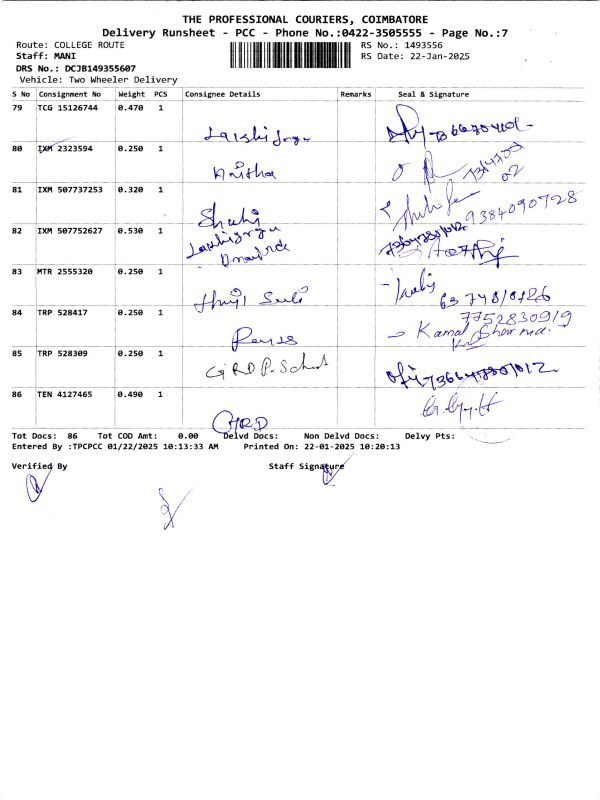 THE PROFESSIONAL COURIERS, COIMBATORE
Delivery Runsheet - PCC - Phone No.:0422-3505555 - Page No.:7
Route: COLLEGE ROUTE RS No.: 1493556
Staff: MANI RS Date: 22-Jan-2025
DRS No.: DCJB149355607
Vehicle: Two Wheeler Delivery
S No Consignment No Weight PCS Consignee Details Remarks Seal & Signature
79 TCG 15126744 0.470 1
80 IXM 2323594 0.250 1
Anisha
81 IXM 507737253 0.320 1
9384090728
82 IXM 507752627 0.530 1
83 MTR 2555320 0.250 1
84 TRP 528417 0.250 1
7752830919
Kamal Sharma
85 TRP 528309 0.250 1
GRD P. School
86 TEN 4127465 0.490 1
GRD
Tot Docs: 86 Tot COD Amt: 0.00 Delvd Docs: Non Delvd Docs: Delvy Pts:
Entered By :TPCPCC 01/22/2025 10:13:33 AM Printed On: 22-01-2025 10:20:13
Verified By Staff Signature